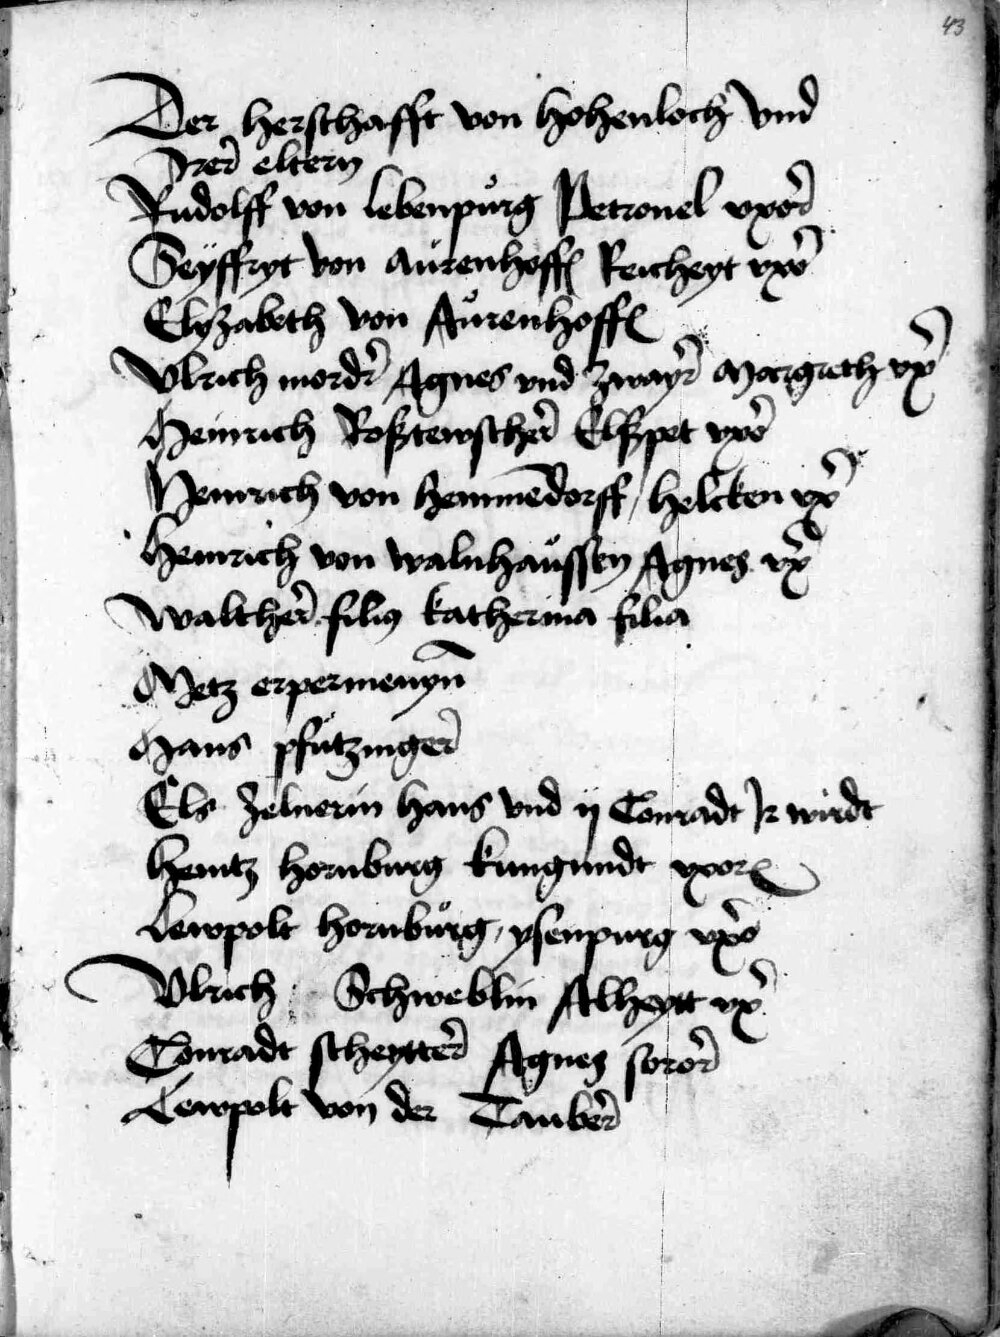 43
Der herschafft von hohenloch vnd
Irer eltern
Rudolff von lebenpůrg Petronel vxor
Seyffryt von Aůrenhoff Reicheyt vxor
Elyzabeth von Aůrenhoff
Vlrich mordr Agnes vnd zwayr Margreth vx
Heinrich Roßtewscher Elßpet vxor
Heinrich von hemmendorff / helcken vx
Heinrich von walnhaůssen Agnes vx
Walther filius katherina filia
Metz erpermenyn
Hans pfützinger
Els zelnerin hans vnd ij Conradt Ir wirdt
heintz hornburg kungundt vxor
Lewpolt hornbůrg, ysenpurg vxor
Vlrich Schweblin Alheytt vx
Conradt scheytter Agnes soror
Lewpolt von der Tauber